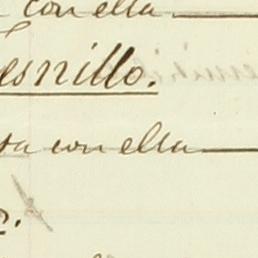 con ella
esnillo.
sa con ella